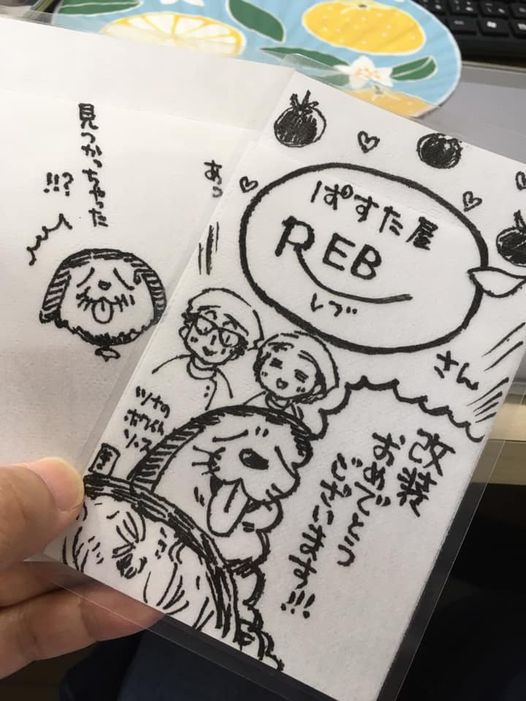 見つかっちゃった
!!!?
あっ
ぱすた屋
REB
レブ
さん
改装
おめでとう
ございます!!!
ツナの
ホワイト
ソース